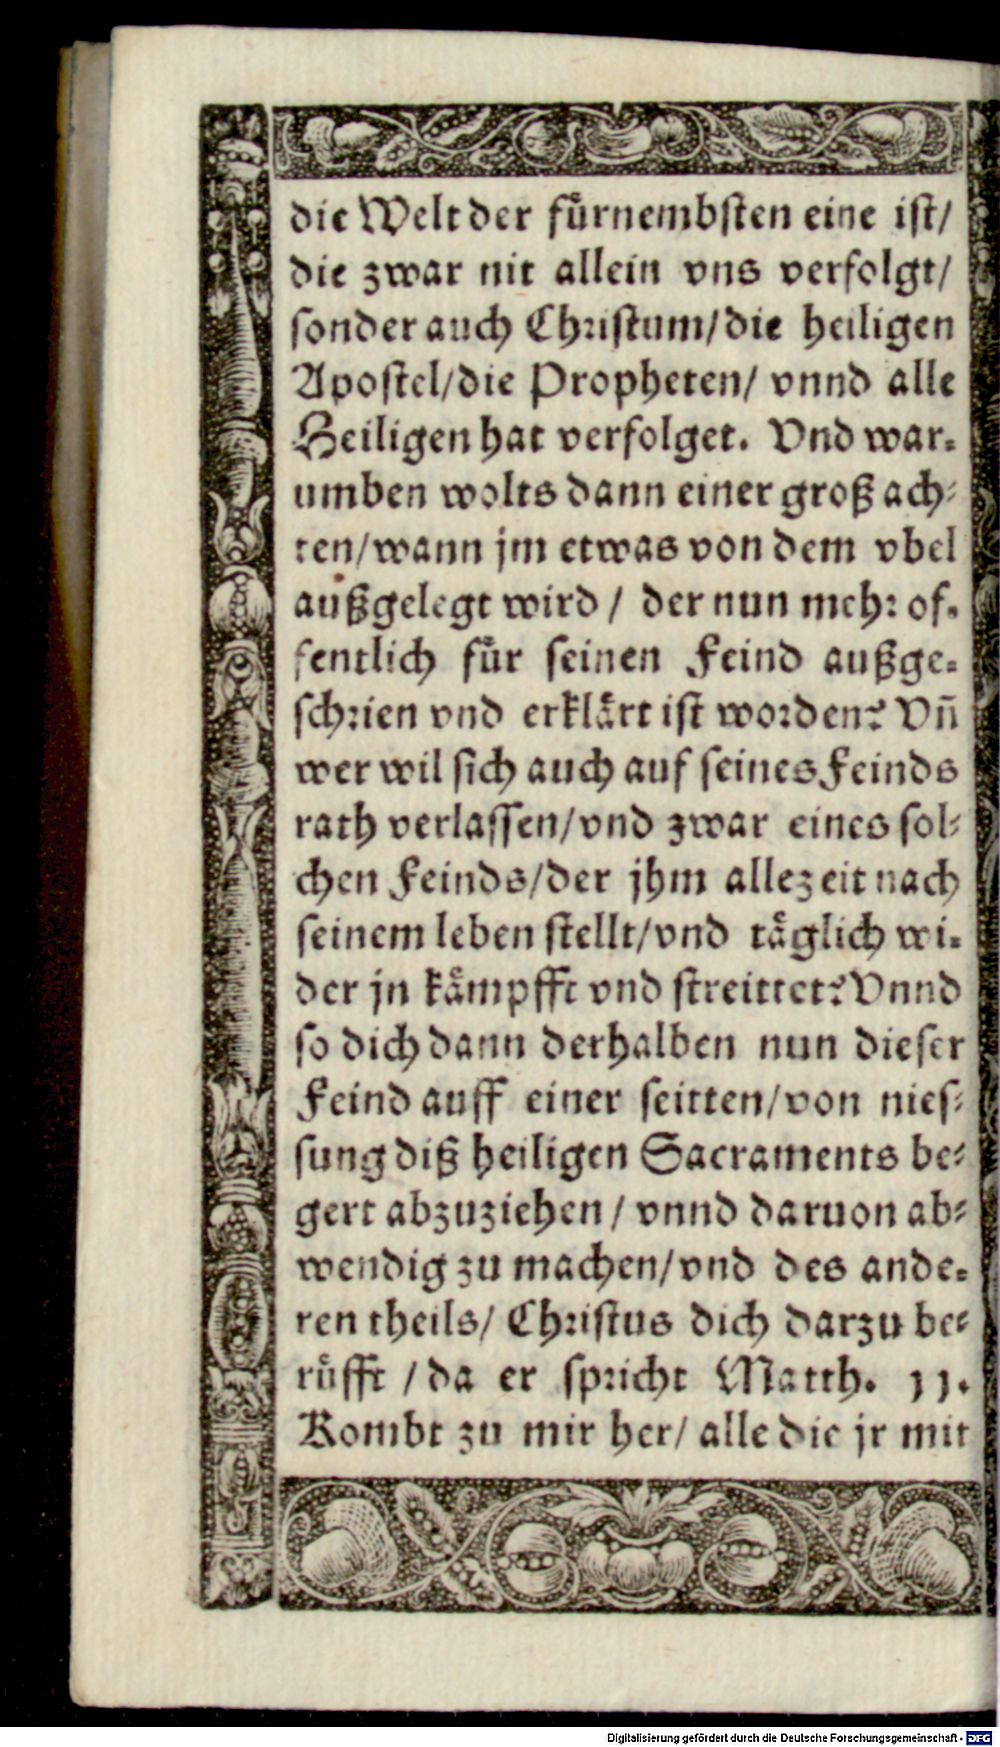 die Welt der fuͤrnembſten eine iſt/
die zwar nit allein vns verfolgt/
ſonder auch Chriſtum/die heiligen
Apoſtel/die Propheten/ vnnd alle
Heiligen hat verfolget. Vnd war⸗
umben wolts dann einer groß ach⸗
ten/wann jm etwas von dem vbel
außgelegt wird / der nun mehꝛ of⸗
fentlich fuͤr ſeinen Feind außge⸗
ſchꝛien vnd erklaͤrt iſt woꝛden? Vñ
wer wil ſich auch auf ſeines Feinds
rath verlaſſen/vnd zwar eines ſol⸗
chen Feinds/der jhm allezeit nach
ſeinem leben ſtellt/vnd taͤglich wi⸗
der jn kaͤmpfft vnd ſtreittet? Vnnd
ſo dich dann derhalben nun dieſer
Feind auff einer ſeitten/von nieſ⸗
ſung diß heiligen Sacraments be⸗
gert abzuziehen / vnnd daruon ab⸗
wendig zu machen/vnd des ande⸗
ren theils/ Chꝛiſtus dich darzu be⸗
ruͤfft / da er ſpꝛicht Matth. 11.
Kombt zu mir her/ alle die jr mit
Digitalisierung gefördert durch die Deutsche Forschungsgemeinschaft - DFG